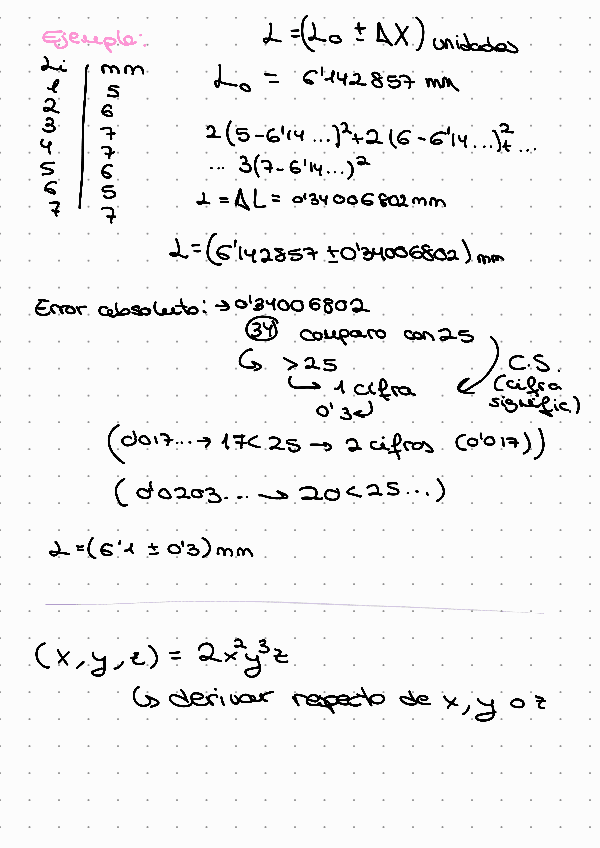 Ejemplo:
L = (L₀ ± ΔX) unidades
Li | mm
1 | 5
2 | 6
3 | 7
4 | 7
5 | 6
6 | 5
7 | 7
L₀ = 6'142857 mm
2(5-6'14...)²+2(6-6'14...)²+...
... 3(7-6'14...)²
L = ΔL = 0'34006802mm
L=(6'142857 ±0'34006802) mm
Error absoluto: → 0'34006802
34 comparo con 25
↳ > 25
↳ 1 cifra
0'3 ↲
C.S.
(cifra
signific.)
(0'017...→ 17<25 → 2 cifras (0'017))
(0'0203... → 20<25...)
L=(6'1 ± 0'3) mm
(x, y, z) = 2x²y³z
↳ derivar respecto de x, y o z